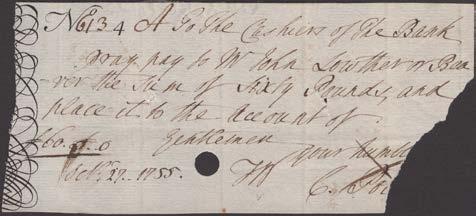 No. 6134 A To The Cashiers of the Bank
pray pay to Mr. John Lowther or Bea
rer the Sum of Sixty Pounds, and
place it to the account of
£60..0..0 Gentlemen
your humb
Octr. 27. 1755.